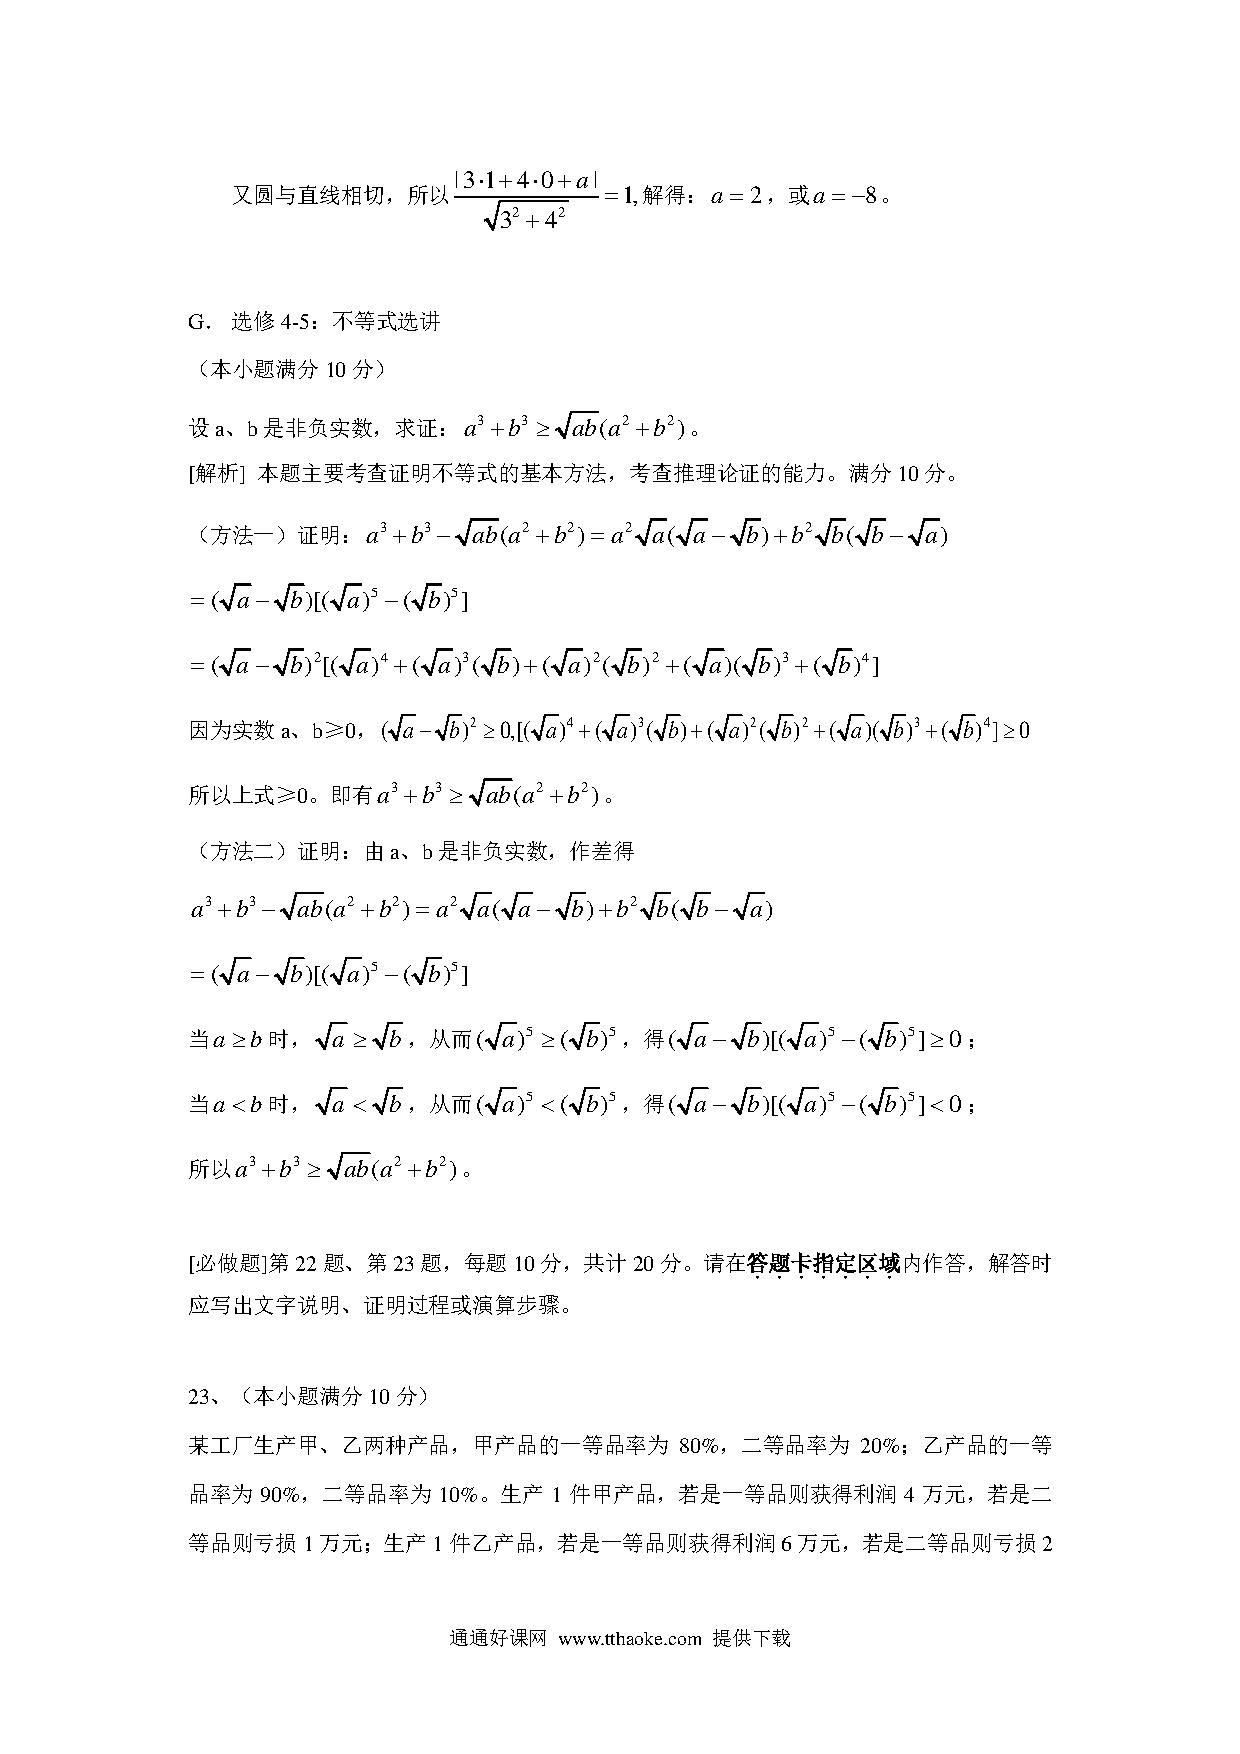 又圆与直线相切，所以 |3·1+4·0+a| / √(3²+4²) =1,解得：a = 2，或a = −8。
G． 选修 4-5：不等式选讲
（本小题满分 10 分）
设 a、b 是非负实数，求证：a³ + b³ ≥ √ab(a² + b²)。
[解析] 本题主要考查证明不等式的基本方法，考查推理论证的能力。满分 10 分。
（方法一）证明：a³ + b³ − √ab(a² + b²) = a²√a(√a − √b) + b²√b(√b − √a)
= (√a − √b)[(√a)⁵ − (√b)⁵]
= (√a − √b)²[(√a)⁴ + (√a)³(√b) + (√a)²(√b)² + (√a)(√b)³ + (√b)⁴]
因为实数 a、b≥0，(√a − √b)² ≥ 0,[(√a)⁴ + (√a)³(√b) + (√a)²(√b)² + (√a)(√b)³ + (√b)⁴] ≥ 0
所以上式≥0。即有 a³ + b³ ≥ √ab(a² + b²)。
（方法二）证明：由 a、b 是非负实数，作差得
a³ + b³ − √ab(a² + b²) = a²√a(√a − √b) + b²√b(√b − √a)
= (√a − √b)[(√a)⁵ − (√b)⁵]
当 a ≥ b 时，√a ≥ √b，从而(√a)⁵ ≥ (√b)⁵，得(√a − √b)[(√a)⁵ − (√b)⁵] ≥ 0；
当 a < b 时，√a < √b，从而(√a)⁵ < (√b)⁵，得(√a − √b)[(√a)⁵ − (√b)⁵] < 0；
所以 a³ + b³ ≥ √ab(a² + b²)。
[必做题]第 22 题、第 23 题，每题 10 分，共计 20 分。请在答题卡指定区域内作答，解答时
应写出文字说明、证明过程或演算步骤。
23、（本小题满分 10 分）
某工厂生产甲、乙两种产品，甲产品的一等品率为 80%，二等品率为 20%；乙产品的一等
品率为 90%，二等品率为 10%。生产 1 件甲产品，若是一等品则获得利润 4 万元，若是二
等品则亏损 1 万元；生产 1 件乙产品，若是一等品则获得利润 6 万元，若是二等品则亏损 2
通通好课网 www.tthaoke.com 提供下载